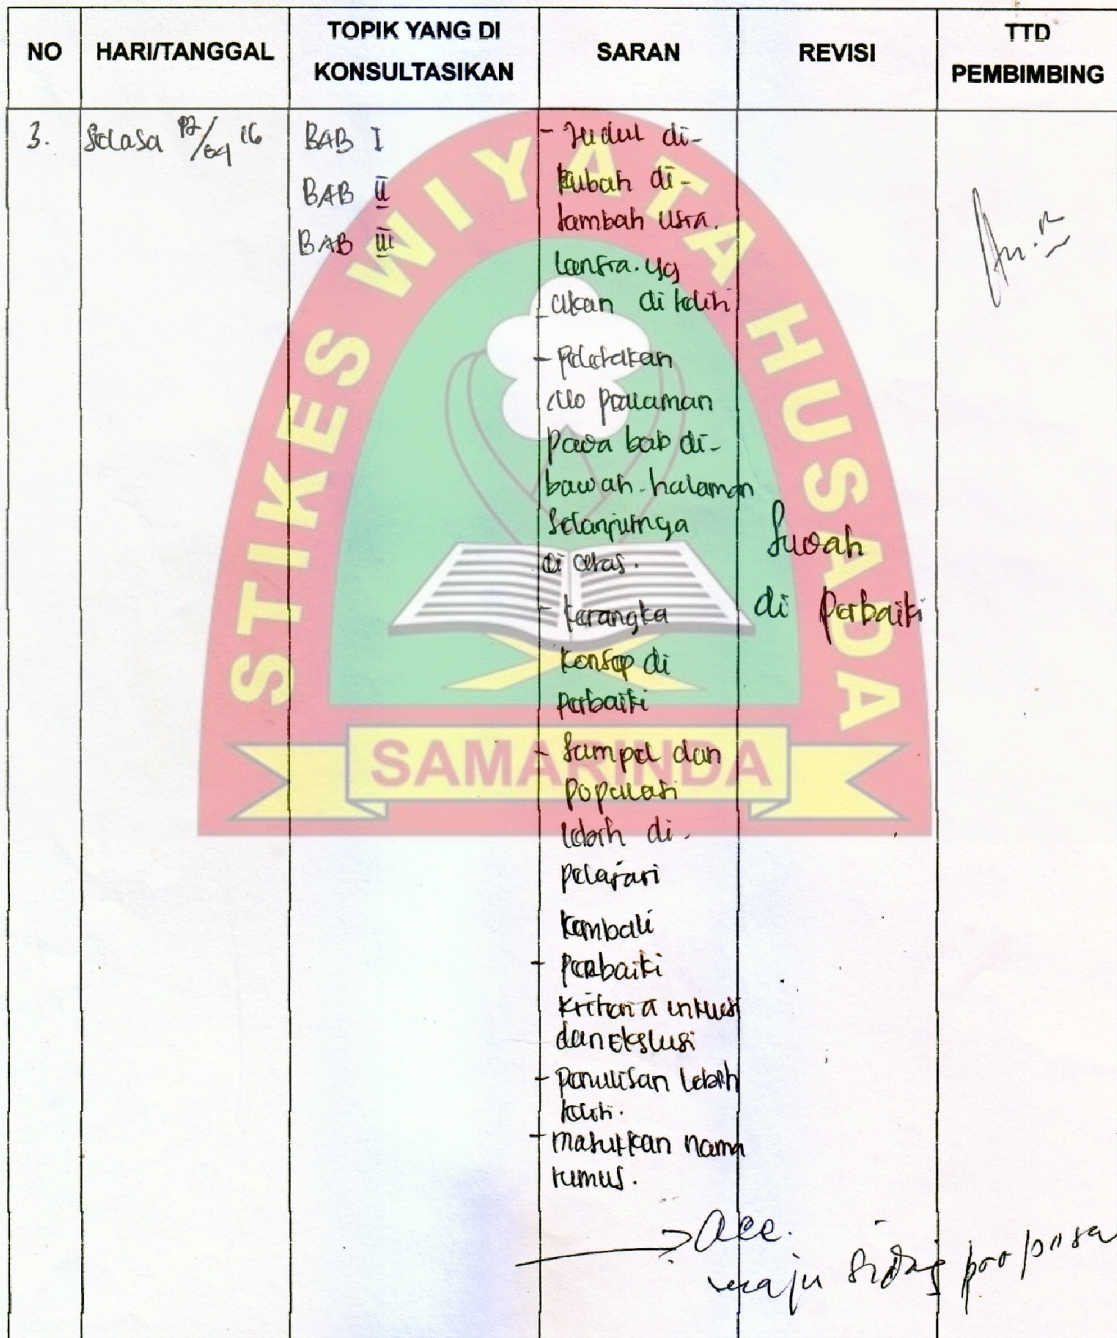 NO HARI/TANGGAL TOPIK YANG DI KONSULTASIKAN SARAN REVISI TTD PEMBIMBING
3. Selasa 12/04 16
BAB I
BAB II
BAB III
- Judul di-
rubah di-
tambah usia.
lansia. yg
akan di teliti
- Peletakan
No halaman
pada bab di-
bawah halaman
selanjutnya
di atas.
- Kerangka
Konsep di
Perbaiki
- Sampel dan
Populasi
lebih di-
pelajari
kembali
- Perbaiki
kriteria inklusi
dan Ekslusi
- Penulisan lebih
teliti.
- masukkan nama
rumus.
Sudah
di Perbaiki
Acc.
maju sidang proposa
STIKES WIYATA HUSADA
SAMARINDA